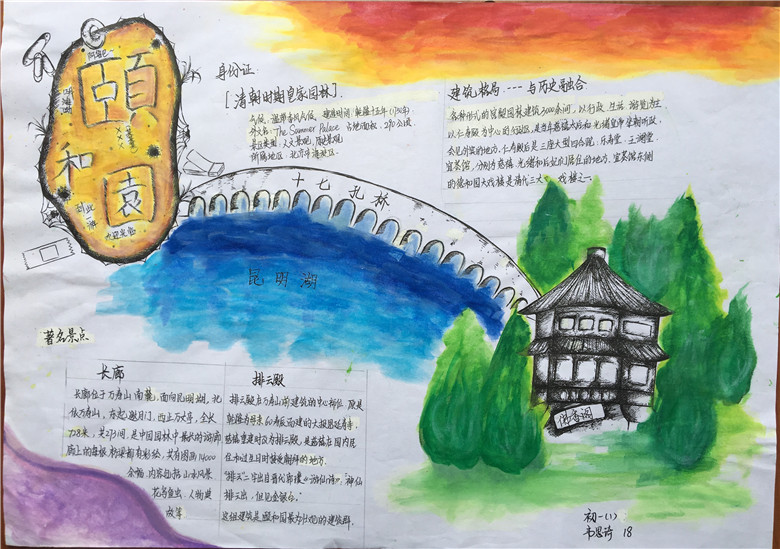 颐和园
身份证:
[清朝时期皇家园林]
气候:温带季风气候 建造时间:乾隆十五年(1750年)
外文名:The Summer Palace 占地面积:290公顷
景区类型:人文景观,历史景观
所属地区:北京市海淀区
建筑格局----与历史局融合
各种形式的宫殿园林建筑3000余间,以行政、生活、游览为主
以仁寿殿为中心的行政区,是当年慈禧太后和光绪皇帝坐朝听政,
会见外宾的地方。仁寿殿后是三座大型四合院:乐寿堂、玉澜堂
宜芸馆,分别为慈禧、光绪和后妃们居住的地方。宜芸馆东侧
的德和园大戏楼是清代三大戏楼之一。
十七孔桥
昆明湖
著名景点
长廊
长廊位于万寿山南麓,面向昆明湖,北
依万寿山,东起邀月门,西止石丈亭,全长
728米,共273间,是中国园林中最长的游廊
廊上的每根枋梁都有彩绘,共有图画14000
余幅,内容包括山水风景
花鸟鱼虫、人物典
故等
排云殿
排云殿在万寿山前建筑的中心部位,原是
乾隆为母亲60寿辰而建的大报恩延寿寺,
慈禧重建时改为排云殿,是慈禧在园内居
住和过生日时接受朝拜的地方。
"排云"二字出自晋代郭璞《游仙诗》,"神仙
排云出,但见金银台。"
这组建筑是颐和园最为壮观的建筑群。
佛香阁
初一(1)
韦思诗 18